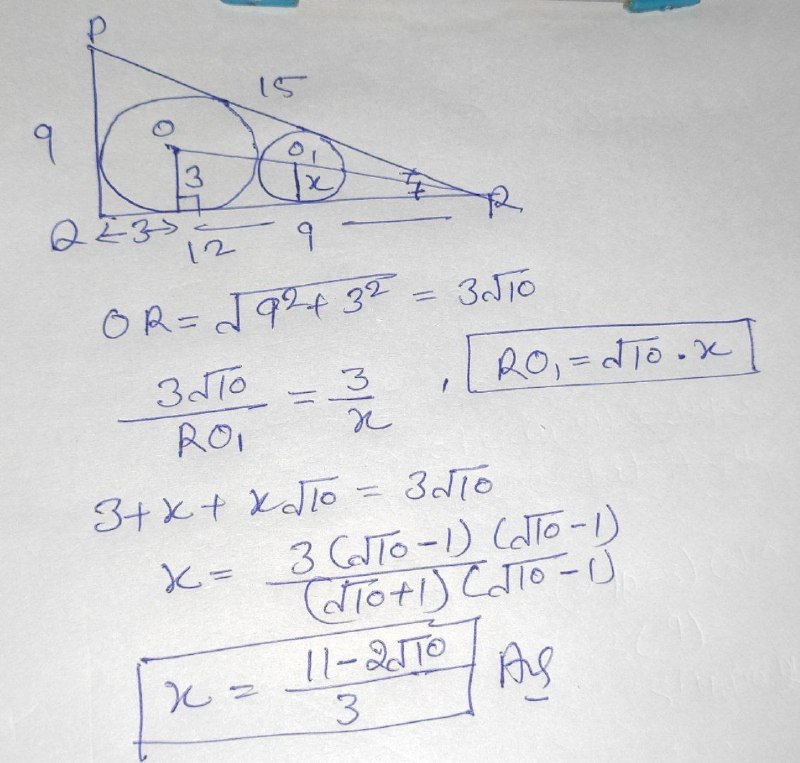 P
15
9
O
O₁
3
x
R
Q ←3→ ← 9 —
12
OR = √(9² + 3²) = 3√10
3√10 / RO₁ = 3 / x , RO₁ = √10 . x
3 + x + x√10 = 3√10
x = 3(√10 - 1) (√10 - 1) / (√10 + 1) (√10 - 1)
x = (11 - 2√10) / 3 Ans